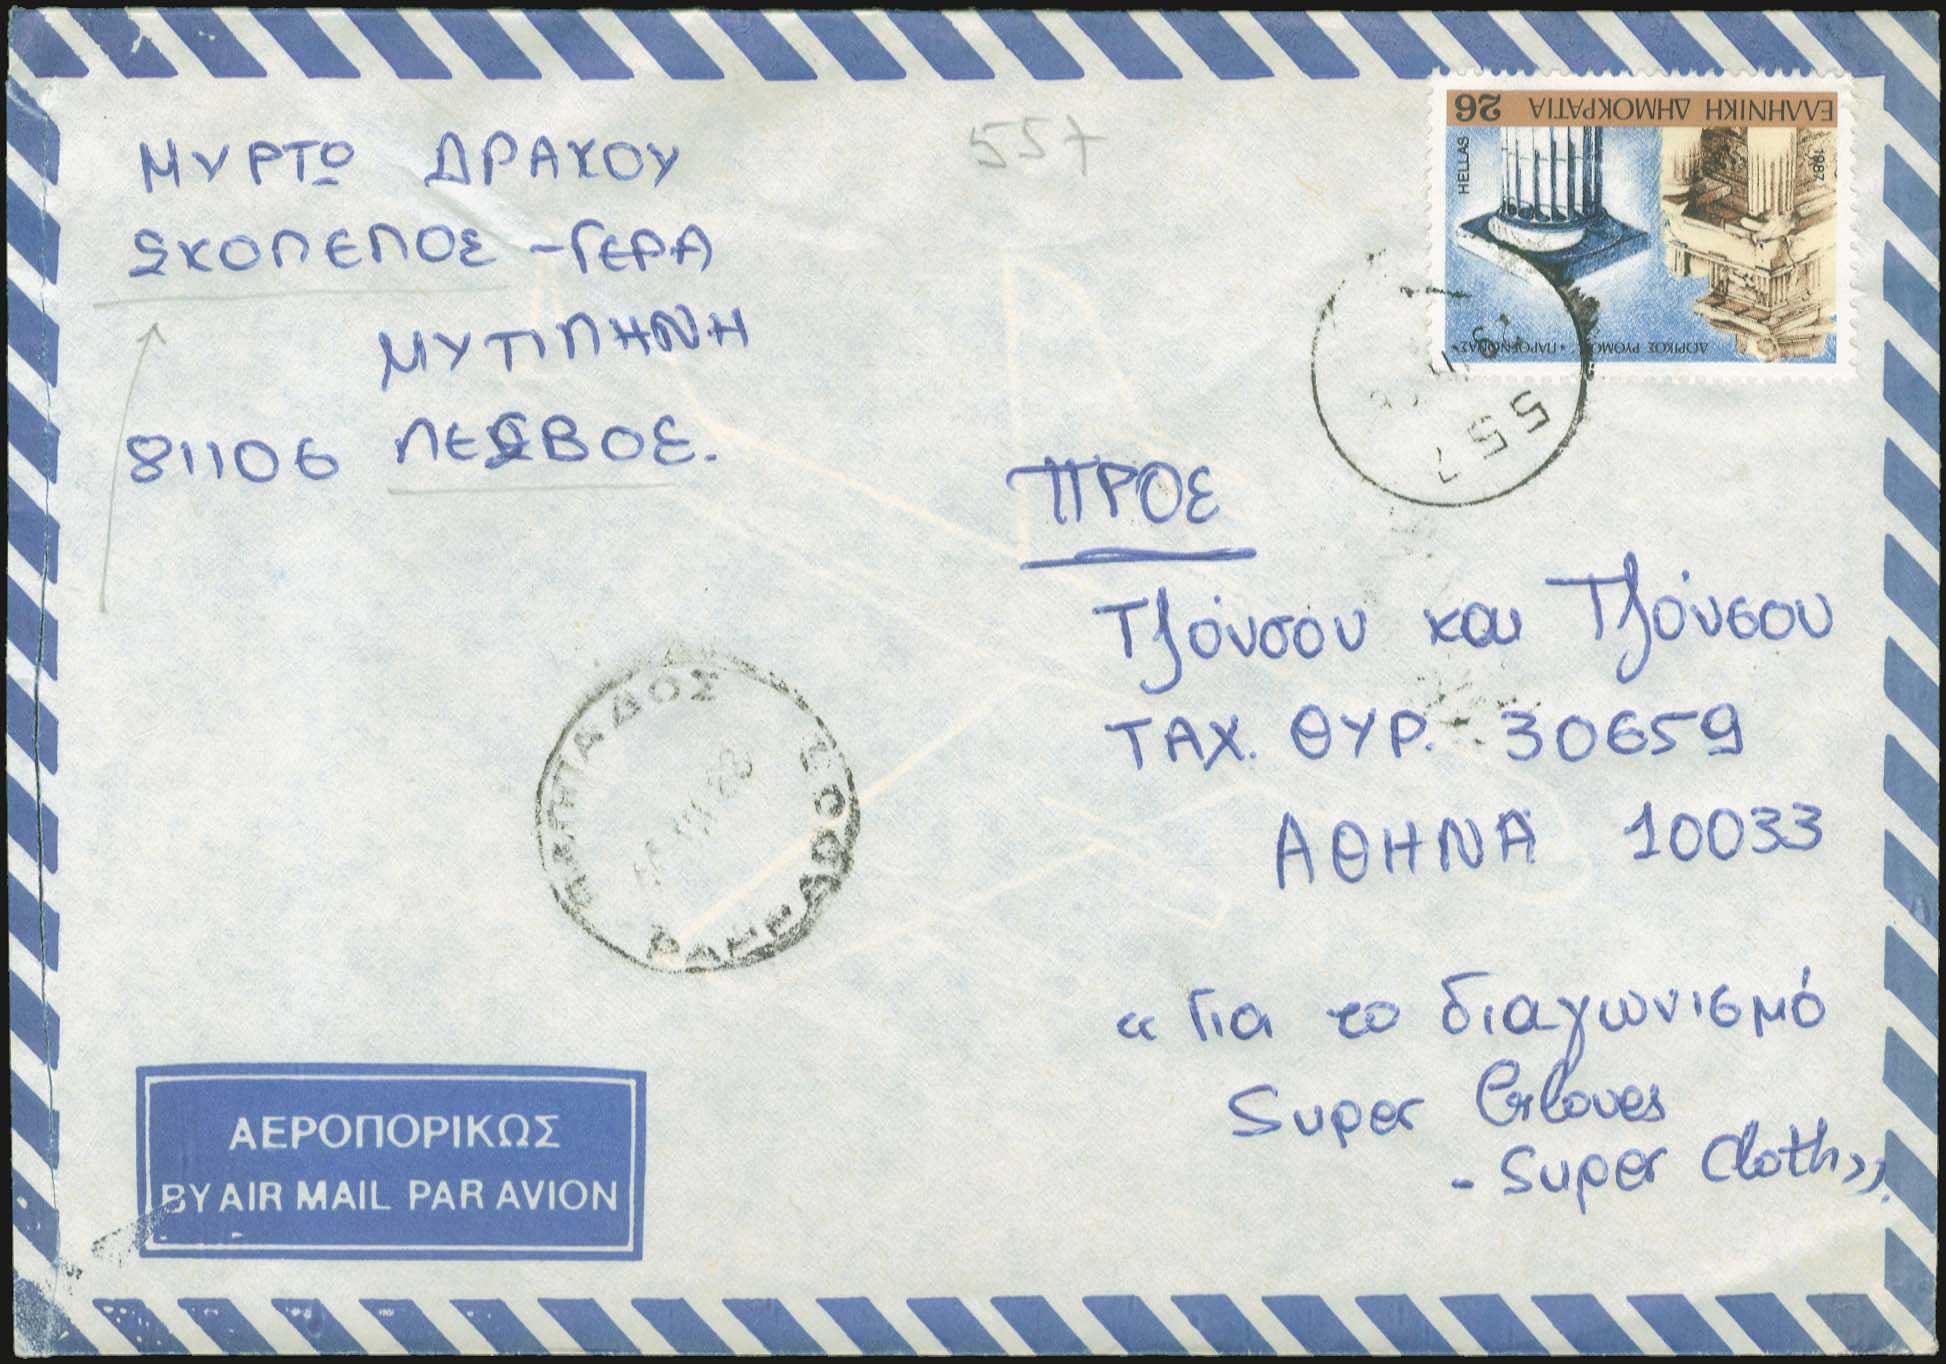 ΜΥΡΤΩ ΔΡΑΚΟΥ
ΣΚΟΠΕΛΟΣ - ΓΕΡΑ
ΜΥΤΙΛΗΝΗ
81106 ΛΕΣΒΟΣ.
557
ΕΛΛΗΝΙΚΗ ΔΗΜΟΚΡΑΤΙΑ 26
HELLAS
1987
ΔΩΡΙΚΟΣ ΡΥΘΜΟΣ • "ΠΑΡΘΕΝΩΝΑΣ"
557
ΠΡΟΣ
Τζόνσον και Τζόνσον
ΤΑΧ. ΘΥΡ. 30659
ΑΘΗΝΑ 10033
« Για το διαγωνισμό
Super Gloves
- Super Cloth».
ΠΑΠΠΑΔΟΣ
ΠΑΠΠΑΔΟΣ
ΑΕΡΟΠΟΡΙΚΩΣ
BY AIR MAIL PAR AVION